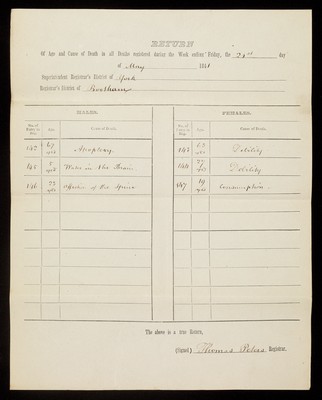 RETURN
Of Age and Cause of Death in all Deaths registered during the Week ending Friday, the 21st day
of May 1841
Superintendent Registrar's District of York
Registrar's District of Bootham
MALES.
FEMALES.
No. of Entry in Reg. Age. Cause of Death.
No. of Entry in Reg. Age. Cause of Death.
67 years Apoplexy.
63 years Debility
145 5 years Water in the Brain.
144 77 years Debility
146 22 years Affection of the Spine
147 19 years Consumption.
The above is a true Return,
(Signed) Thomas Peters Registrar.